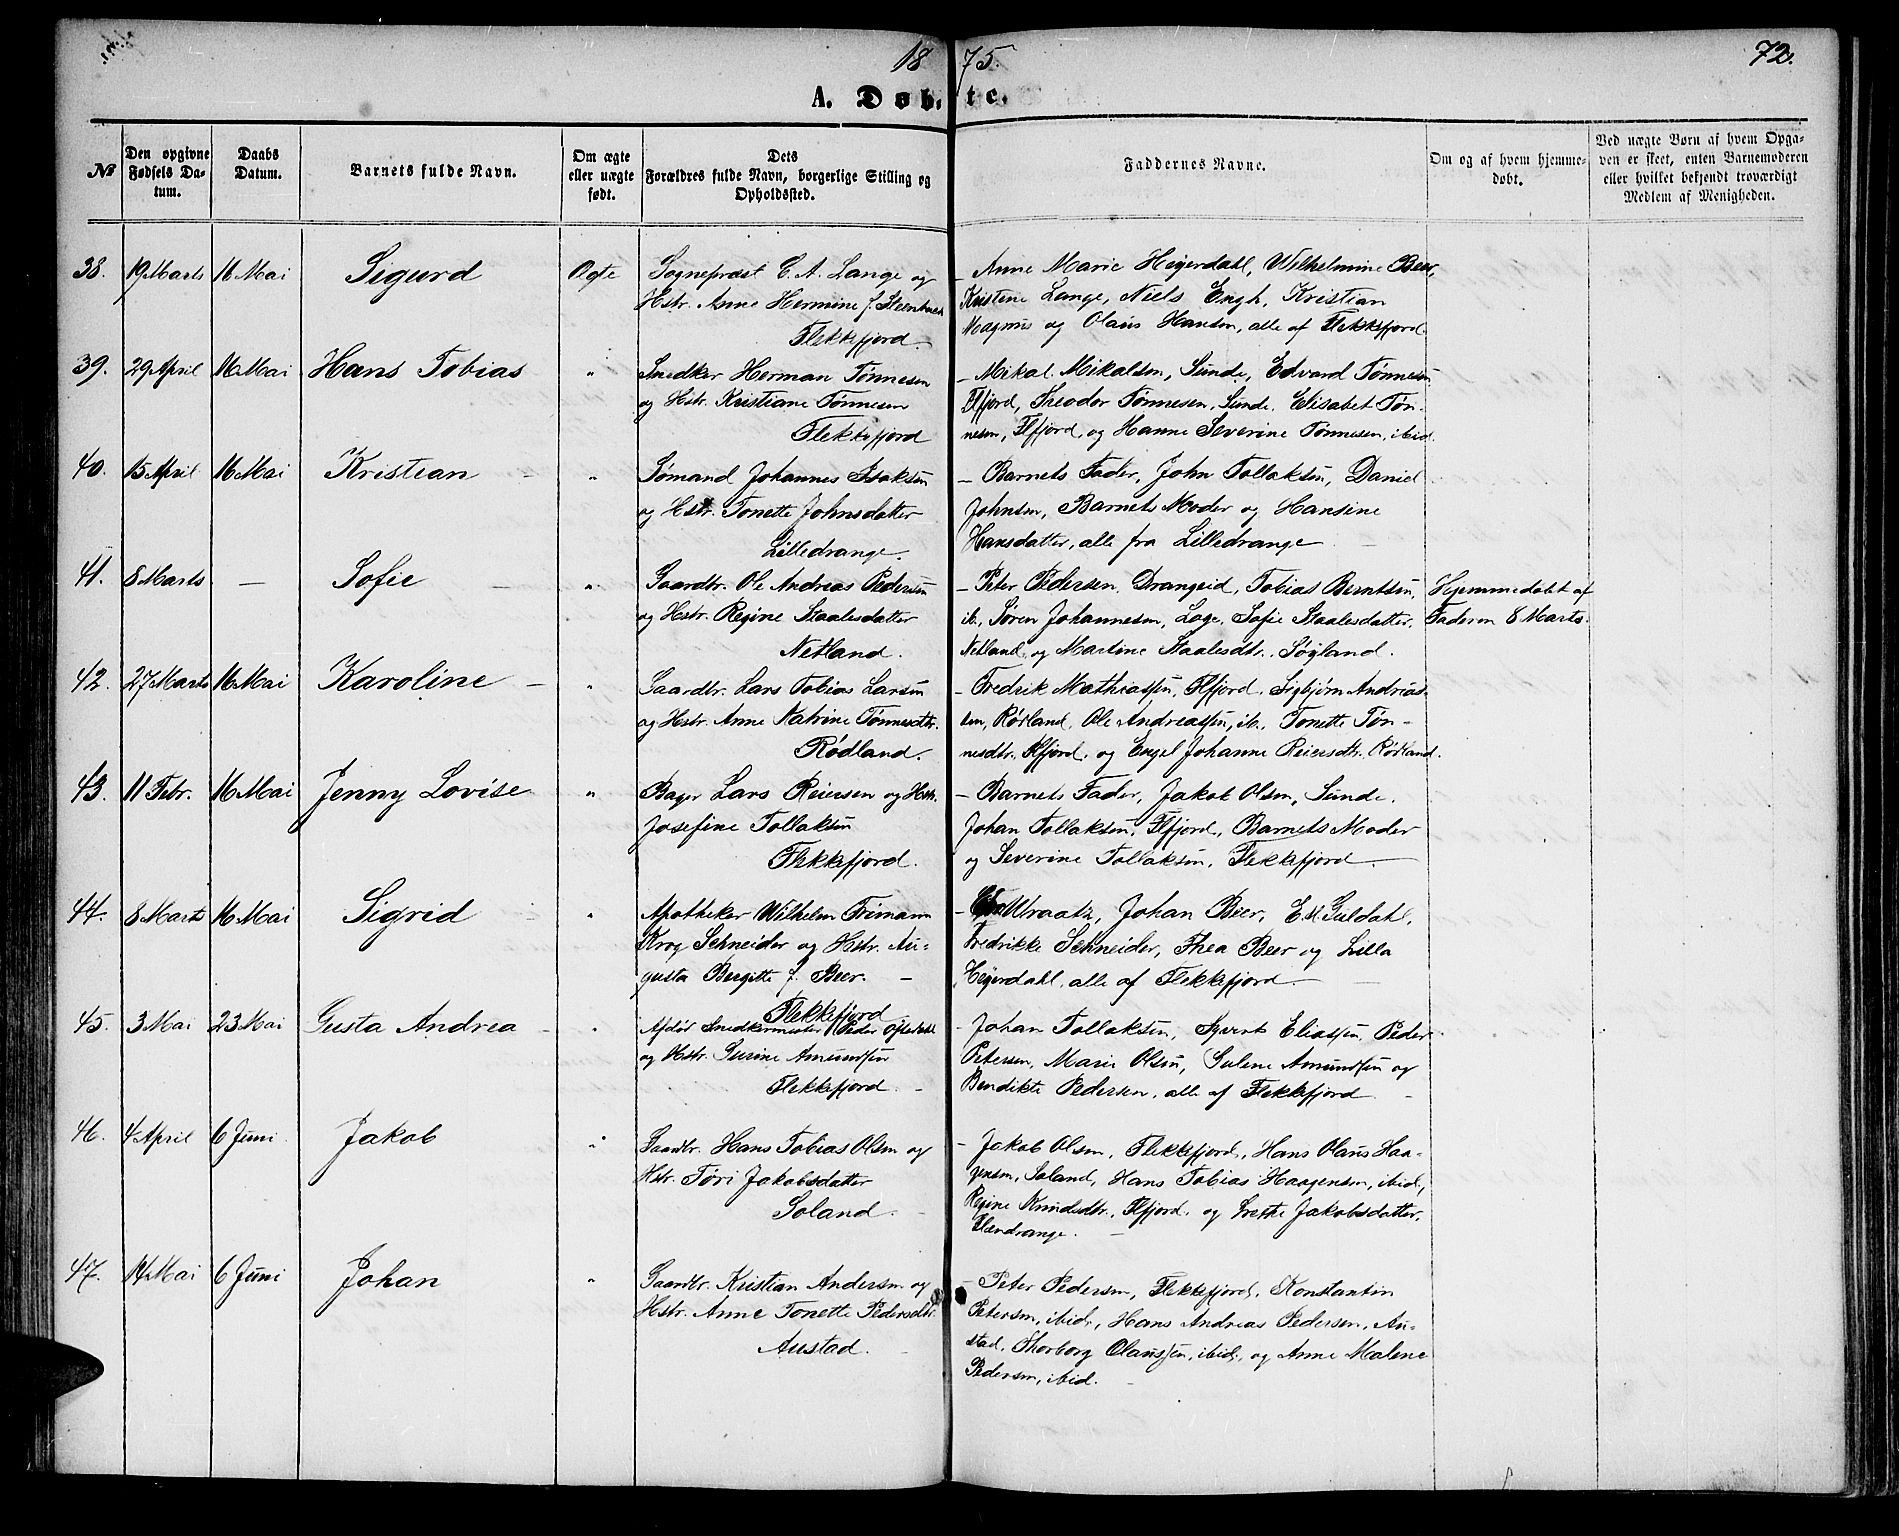 1875. 72.
A. Døbte.
№ Den opgivne Fødsels Datum. Daabs Datum. Barnets fulde Navn. Om ægte eller uægte født. Dets Forældres fulde Navn, borgerlige Stilling og Opholdssted. Faddernes Navne. Om og af hvem hjemmedøbt. Ved uægte Børn af hvem Opgaven er skeet, enten Barnemoderen eller hvilket bekjendt troværdigt Medlem af Menigheden.
38. 19 Marts 16 Mai Sigurd Ægte Sognepræst C. A. Lange og
Hstr. Anne Hermine f. Steenbuch
Flekkefjord.
— Anne Marie Heyerdahl, Wilhelmine Beer,
Kristine Lange, Niels Engh, Kristian
Magnus og Olaus Hansen, alle af Flekkefjord.
39. 29 April 16 Mai Hans Tobias " Snedker Herman Tønnesen
og Hstr. Kristiane Tønnesen
Flekkefjord
— Mikal Mikalsen, Sunde, Edvard Tønnesen
Flfjord, Theodor Tønnesen, Sunde, Elisabet Tøn-
nesen, Flfjord, og Hanne Severine Tønnesen, ibid.
40. 15 April 16 Mai Kristian — " Sømand Johannes Isaksen
og Hstr. Tonette Johnsdatter
Lilledrange.
— Barnets Fader, John Tollaksen, Daniel
Johnsen, Barnets Moder og Hansine
Hansdatter, alle fra Lilledrange
41. 8 Marts — Sofie — " Gaardbr. Ole Andreas Pedersen
og Hstr. Regine Staalesdatter
Netland.
— Peter Pedersen, Drangeid, Tobias Berntsen,
ib., Søren Johannesen, Loge, Sofie Staalesdatter,
Netland, og Martine Staalesdtr. Søyland.
Hjemmedøbt af
Faderen 8 Marts.
42. 27 Marts 16 Mai Karoline — " Gaardbr. Lars Tobias Larsen
og Hstr. Anne Katrine Tønnesdtr.
Rødland.
— Fredrik Mathiassen, Flfjord, Sigbjørn Andreas-
sen, Rødland, Ole Andreassen, ib., Tonette Tøn-
nesdtr. Flfjord, og Engel Johanne Reiersdtr. Rødland.
43. 11 Febr. 16 Mai Jenny Lovise " Bager Lars Reiersen og Hstr.
Josefine Tollaksen
Flekkefjord.
— Barnets Fader, Jakob Olsen, Sunde,
Johan Tollaksen, Flfjord, Barnets Moder
og Severine Tollaksen, Flekkefjord
44. 8 Marts 16 Mai Sigrid " Apotheker Wilhelm Frimann
Krog Schneider og Hstr. Au-
gusta Bergitte f. Beer. —
Flekkefjord
— Johan Beer, E. M. Guldahl,
Fredrikke Schneider, Thea Beer og Lilla
Heyerdahl, alle af Flekkefjord. —
45. 3 Mai 23 Mai Gusta Andrea — " Afdøde Snedkermester Peder
og Hstr. Surine Amundsen
Flekkefjord. —
— Johan Tollaksen, Syvert Eliassen, Peder
Petersen, Marie Olsen, Gulene Amundsen og
Bendikte Pedersen, alle af Flekkefjord
46. 4 April 6 Juni Jakob " Gaardbr. Hans Tobias Olsen og
Hstr. Tøri Jakobsdatter
Soland. —
— Jakob Olsen, Flekkefjord, Hans Olaus Haa-
gensen, Soland, Hans Tobias Haagensen, ibid.,
Regine Knudsdtr., Flfjord, og Grethe Jakobsdatter,
Flændrange. —
47. 14 Mai 6 Juni Johan " Gaardbr. Kristian Andersen og
Hstr. Anne Tonette Pedersdtr.
Austad. —
— Peter Pedersen, Flekkefjord, Konstantin
Petersen, ibid., Hans Andreas Pedersen, Au-
stad, Thorborg Olaussen, ibid., og Anne Malene
Pedersen, ibid. —